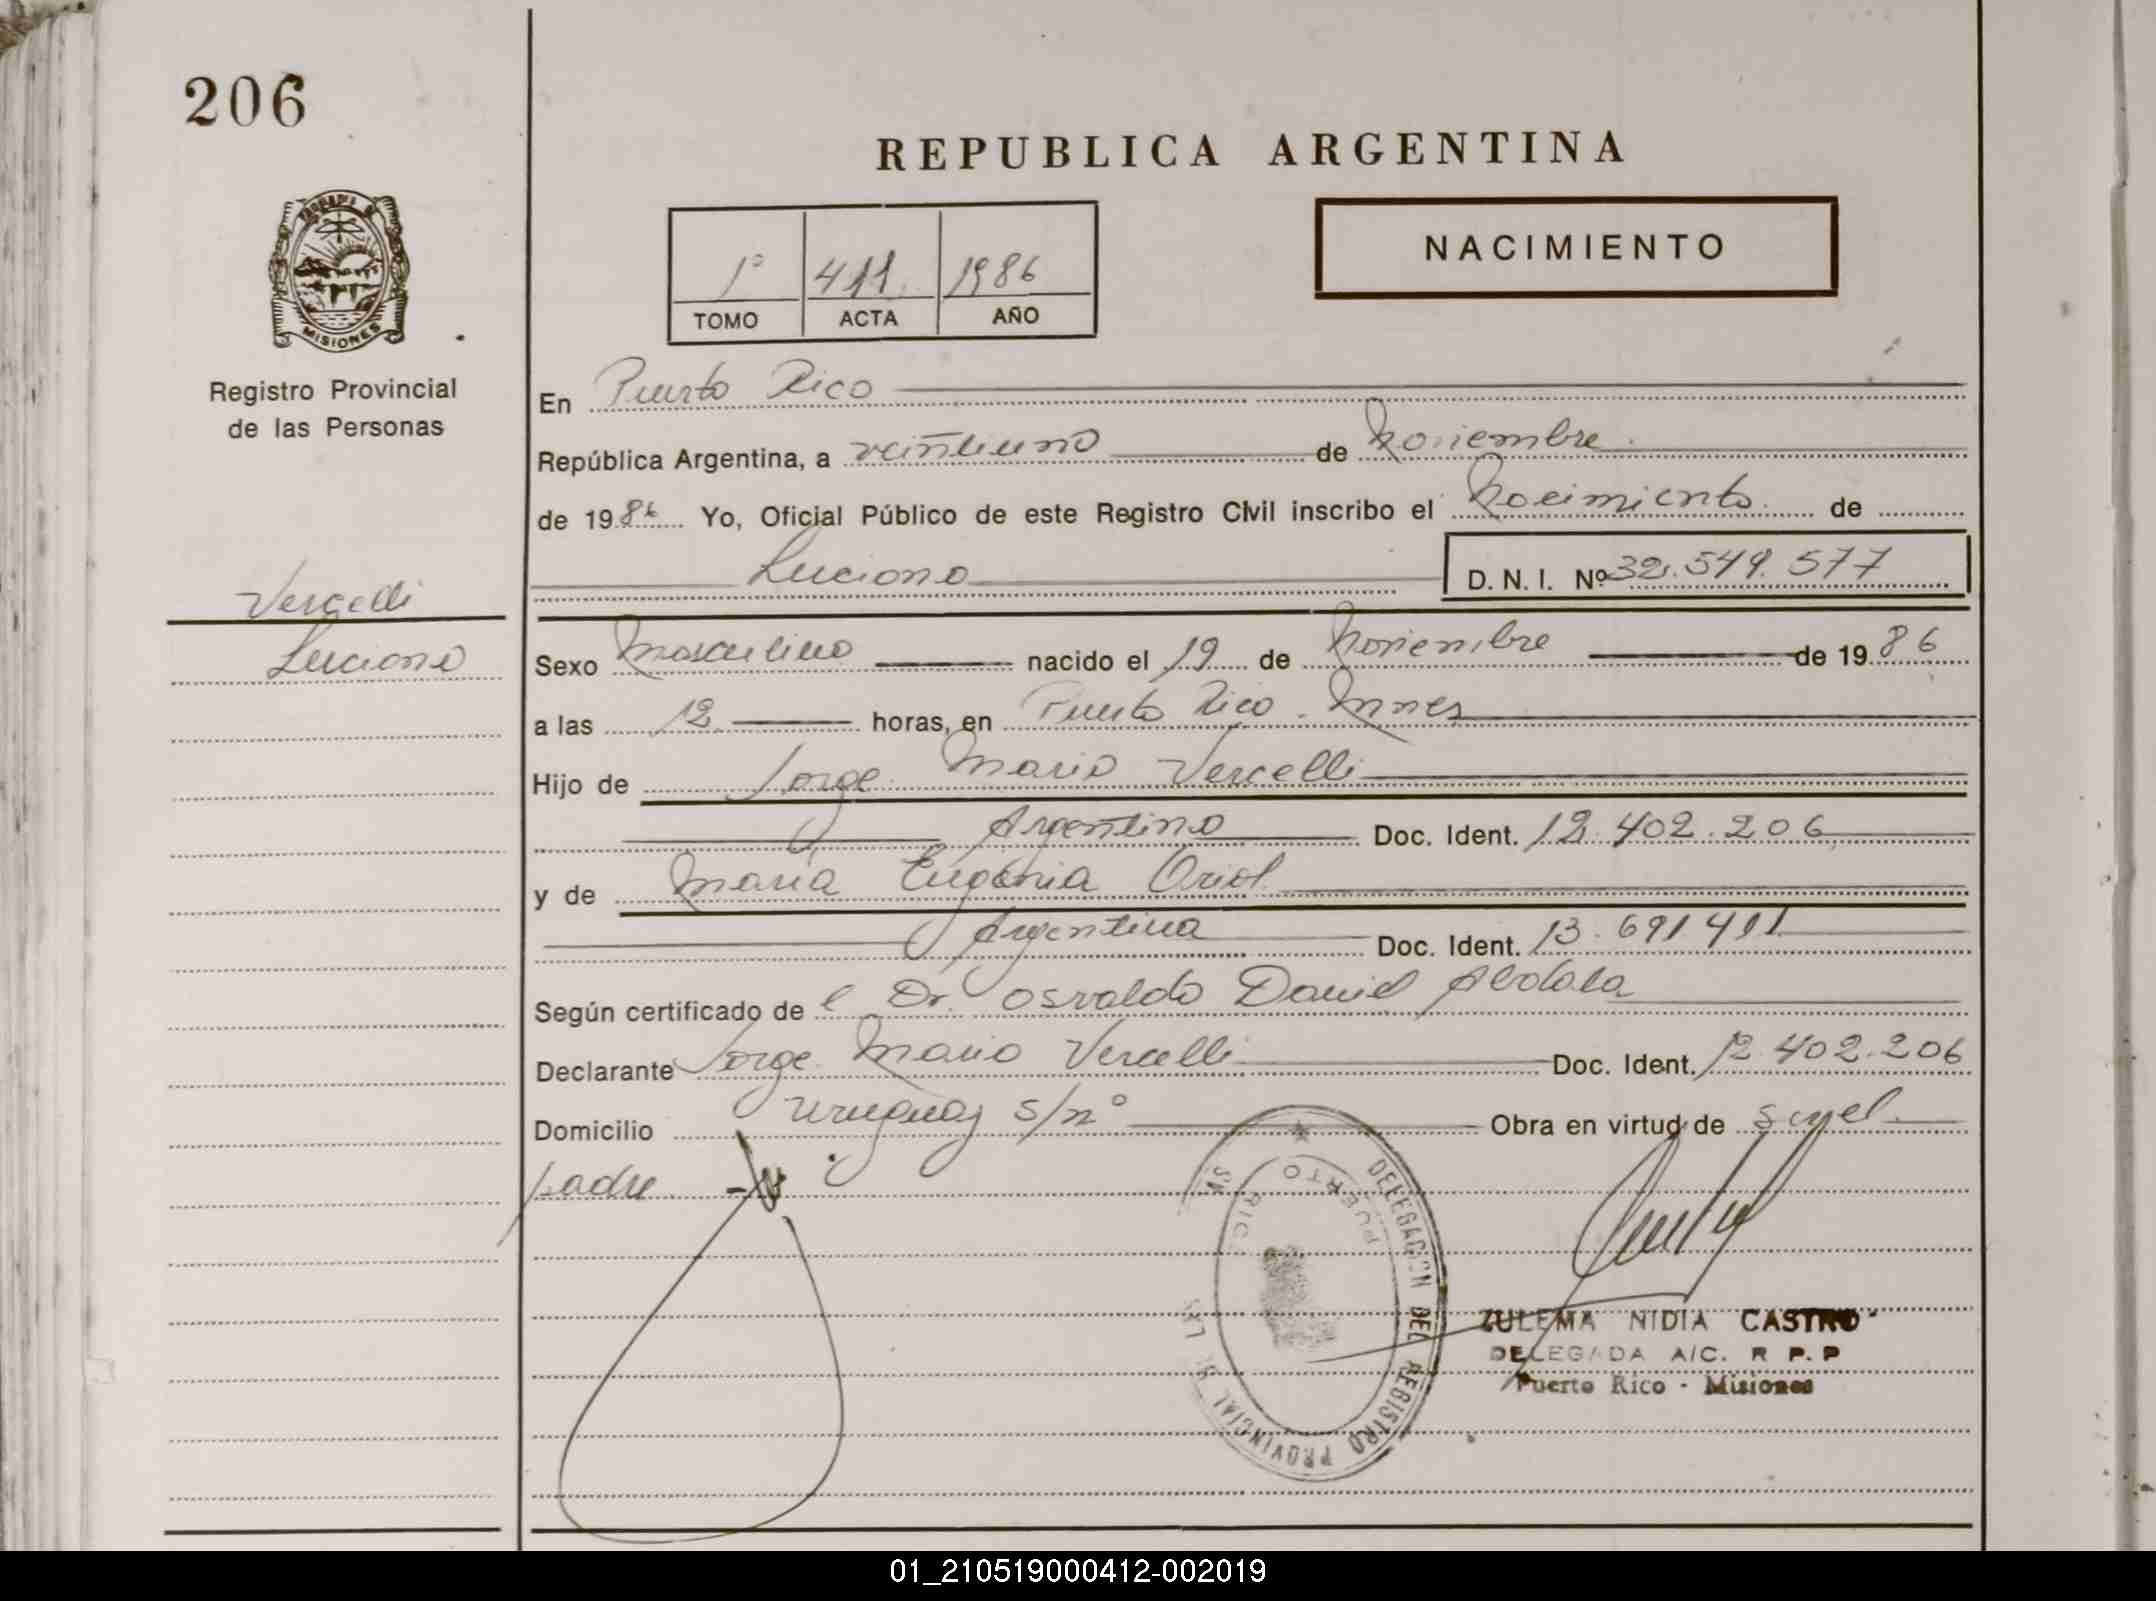 206
REPUBLICA ARGENTINA
NACIMIENTO
1º 411 1986
TOMO ACTA AÑO
MISIONES
Registro Provincial
de las Personas
Vercelli
Luciano
En Puerto Rico
República Argentina, a veintiuno de Noviembre
de 1986 Yo, Oficial Público de este Registro Civil inscribo el Nacimiento de
Luciano D. N. I. Nº 32.549.577
Sexo Masculino nacido el 19 de Noviembre de 1986
a las 12 horas, en Puerto Rico. Mnes
Hijo de Jorge Mario Vercelli
Argentino Doc. Ident. 12.402.206
y de María Eugenia Oriol
Argentina Doc. Ident. 13.691411
Según certificado de l Dr. Osvaldo Daniel
Declarante Jorge Mario Vercelli Doc. Ident. 12.402.206
Domicilio Uruguay s/nº Obra en virtud de ser el
padre
DELEGACION DEL REGISTRO PROVINCIAL DE LAS
PUERTO RICO
ZULEMA NIDIA CASTRO
DELEGADA A/C. R P. P
Puerto Rico - Misiones
01_210519000412-002019